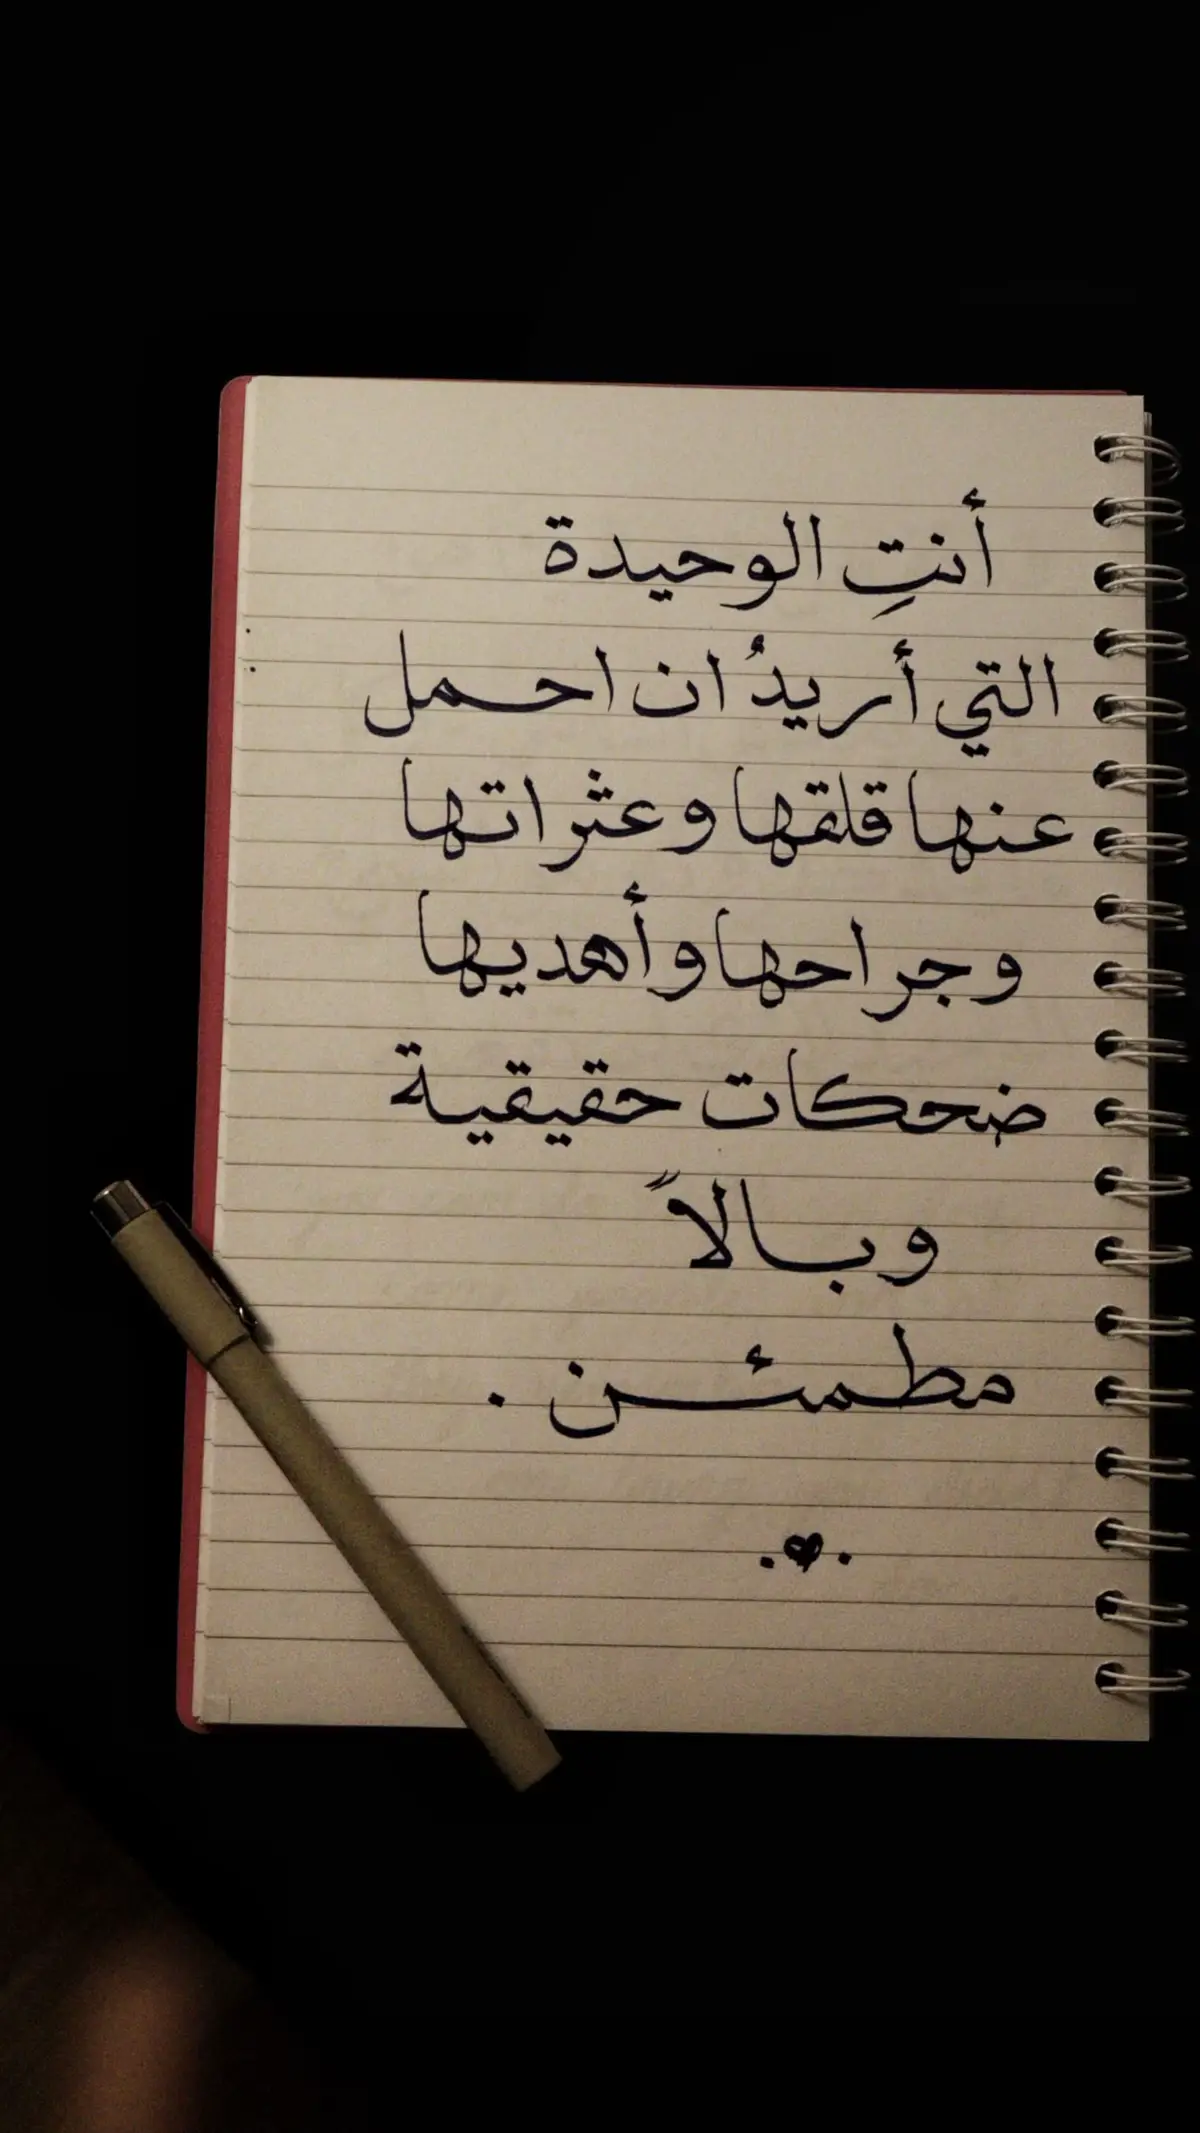 أنتِ الوحيدة
التي أريدُ ان احمل
عنها قلقها وعثراتها
وجراحها وأهديها
ضحكات حقيقية
وبالاً
مطمئن .